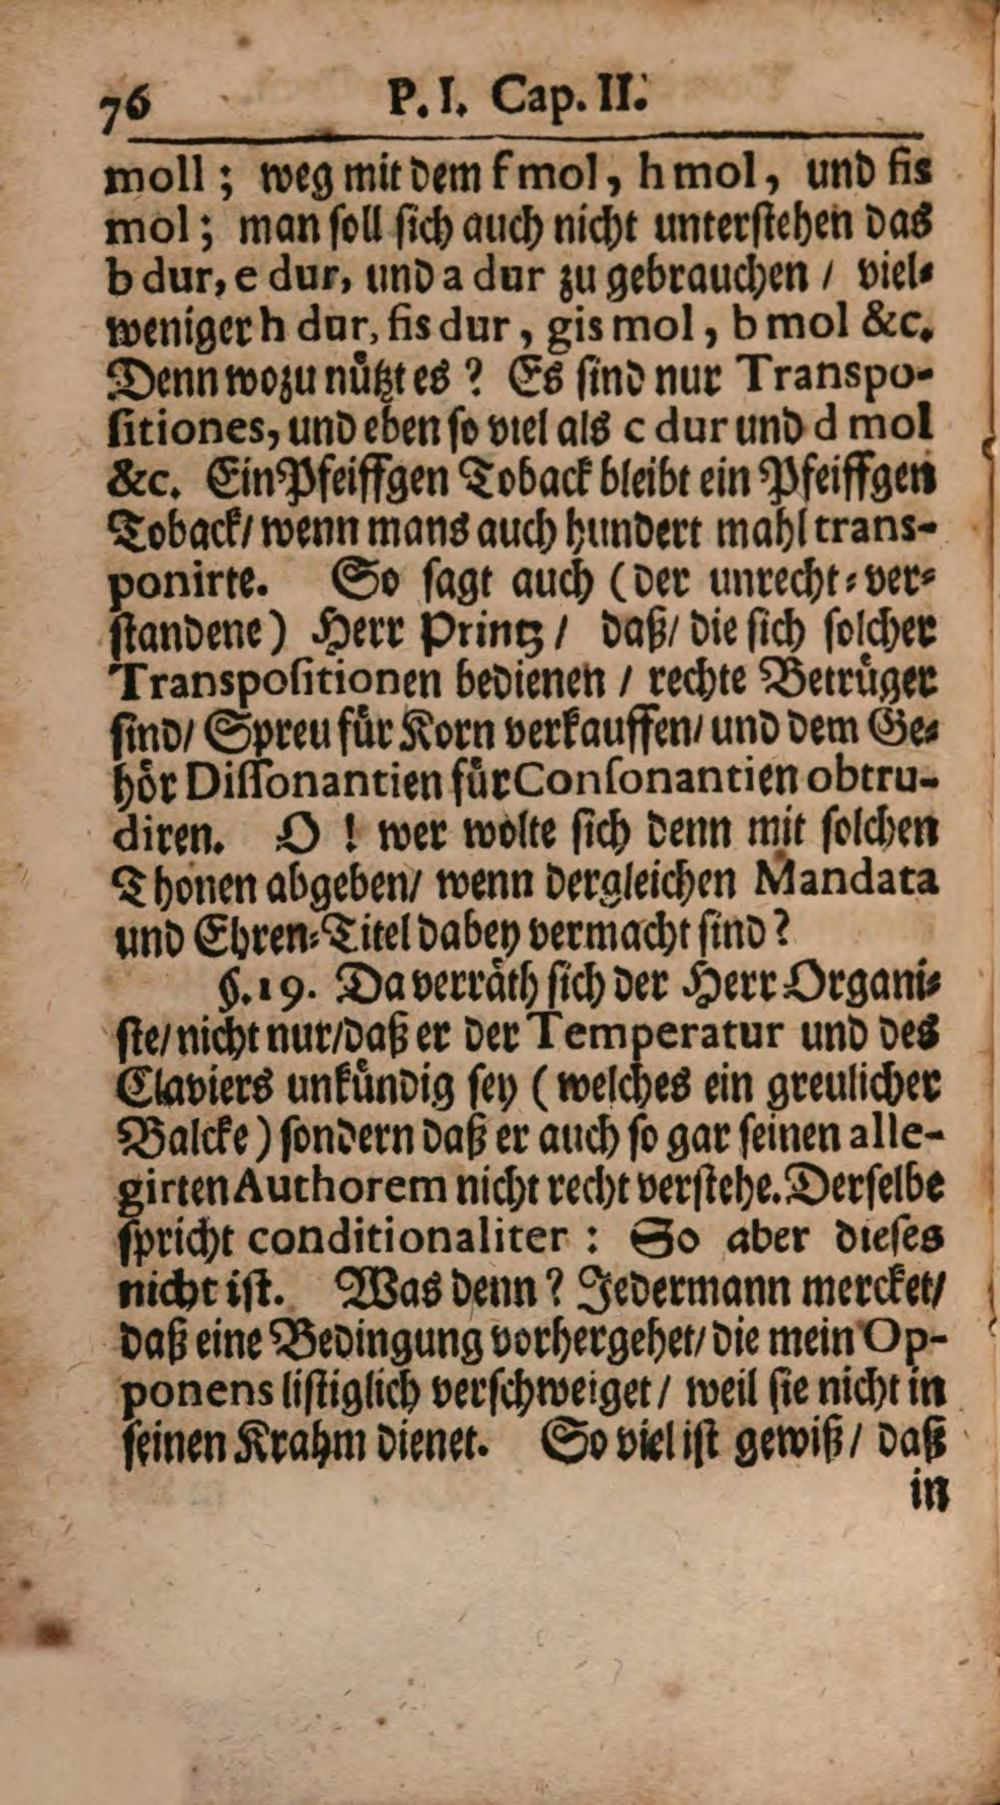 76 P. I. Cap. II.
moll; weg mit dem f mol, h mol, und fis
mol; man soll sich auch nicht unterstehen das
b dur, e dur, und a dur zu gebrauchen / viel-
weniger h dur, fis dur, gis mol, b mol &c.
Denn wozu nützt es? Es sind nur Transpo-
sitiones, und eben so viel als c dur und d mol
&c. Ein Pfeiffgen Toback bleibt ein Pfeiffgen
Toback/ wenn mans auch hundert mahl trans-
ponirte. So sagt auch (der unrecht-ver-
standene) Herr Printz / daß/ die sich solcher
Transpositionen bedienen / rechte Betrüger
sind/ Spreu für Korn verkauffen/ und dem Ge-
hör Dissonantien für Consonantien obtru-
diren. O! wer wolte sich denn mit solchen
Thonen abgeben/ wenn dergleichen Mandata
und Ehren-Titel dabey vermacht sind?
§. 19. Da verräth sich der Herr Organi-
ste/ nicht nur/ daß er der Temperatur und des
Claviers unkündig sey (welches ein greulicher
Balcke) sondern daß er auch so gar seinen alle-
girten Authorem nicht recht verstehe. Derselbe
spricht conditionaliter: So aber dieses
nicht ist. Was denn? Jedermann mercket/
daß eine Bedingung vorhergehet/ die mein Op-
ponens listiglich verschweiget / weil sie nicht in
seinen Krahm dienet. So viel ist gewiß / daß
in